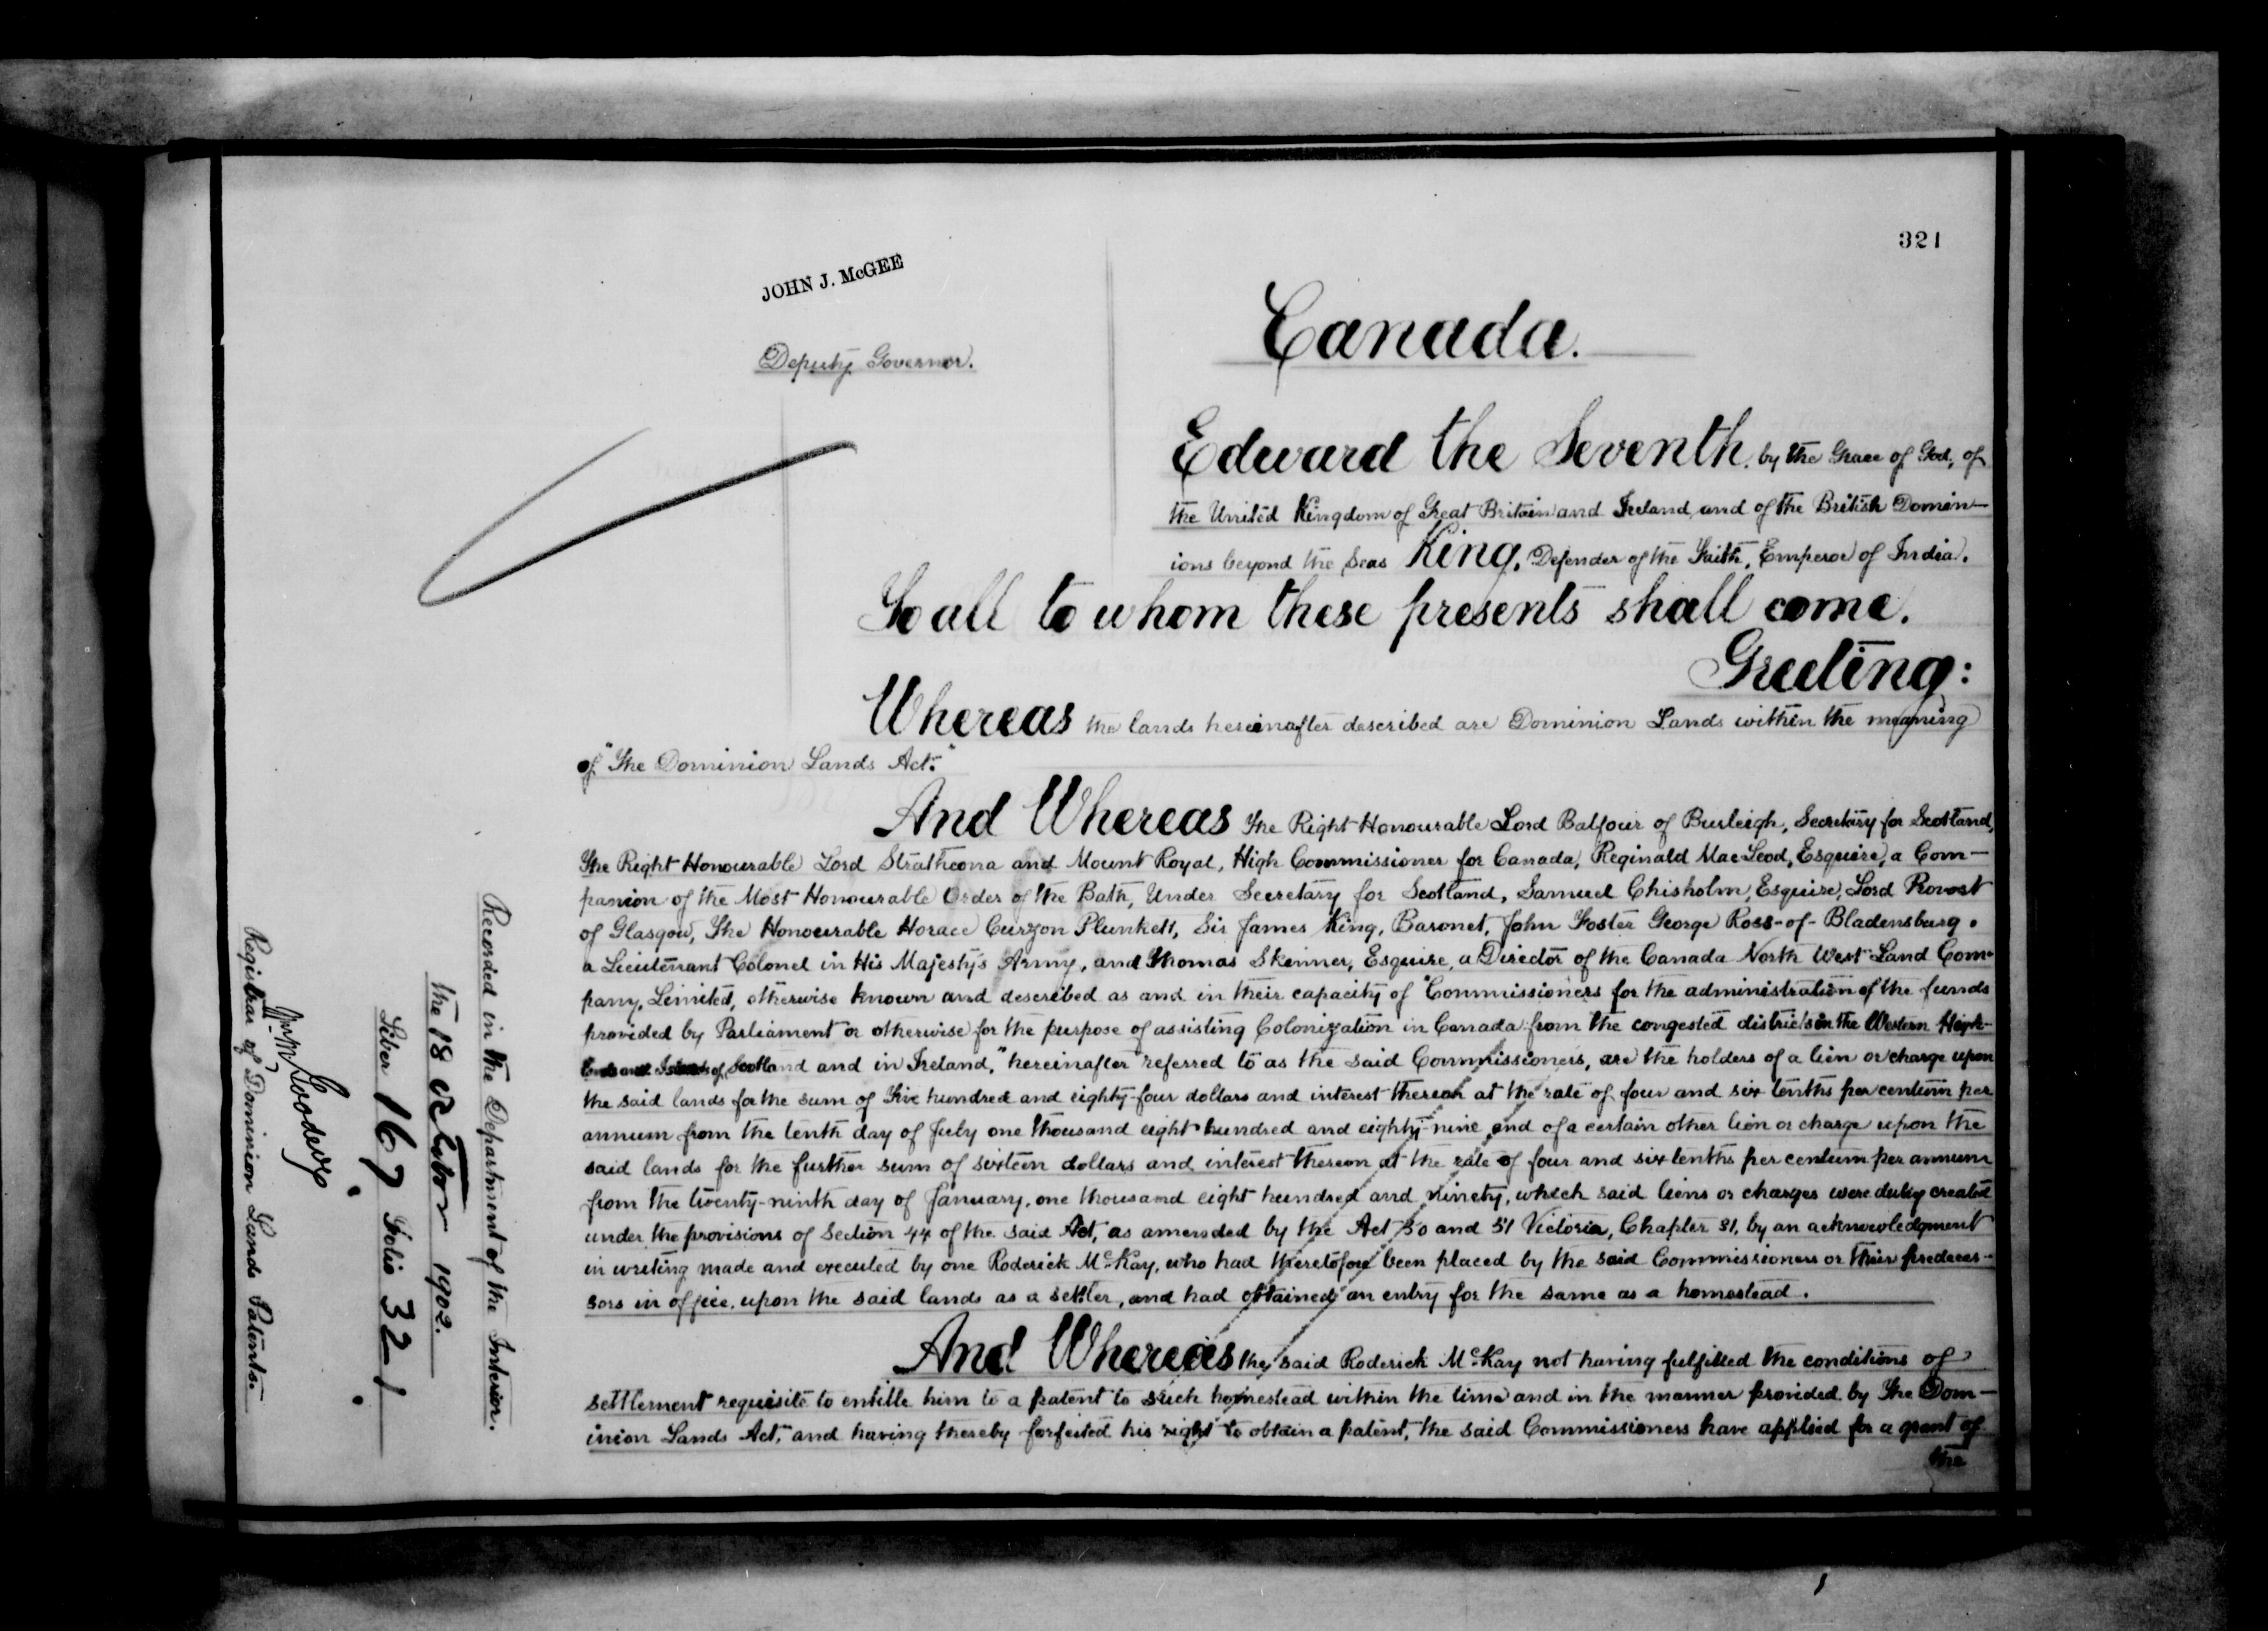 321
JOHN J. McGEE
Deputy Governor.
Canada.
Edward the Seventh, by the Grace of God, of
the United Kingdom of Great Britain and Ireland, and of the British Domin-
ions beyond the Seas King, Defender of the Faith, Emperor of India.
To all to whom these presents shall come.
Greeting:
Whereas the lands hereinafter described are Dominion Lands within the meaning
of "The Dominion Lands Act."
And Whereas The Right Honourable Lord Balfour of Burleigh, Secretary for Scotland,
The Right Honourable Lord Strathcona and Mount Royal, High Commissioner for Canada, Reginald MacLeod, Esquire, a Com-
panion of the Most Honourable Order of the Bath, Under Secretary for Scotland, Samuel Chisholm, Esquire, Lord Provost
of Glasgow, The Honourable Horace Curzon Plunkett, Sir James King, Baronet, John Foster George Ross-of-Bladensburg,
a Lieutenant Colonel in His Majesty's Army, and Thomas Skinner, Esquire, a Director of the Canada North West Land Com-
pany, Limited, otherwise known and described as and in their capacity of "Commissioners for the administration of the funds
provided by Parliament or otherwise for the purpose of assisting Colonization in Canada from the congested districts in the Western High-
lands and Islands of Scotland and in Ireland," hereinafter referred to as the said Commissioners, are the holders of a lien or charge upon
the said lands for the sum of Five hundred and eighty-four dollars and interest thereon at the rate of four and six tenths per centum per
annum from the tenth day of July one thousand eight hundred and eighty-nine, and of a certain other lien or charge upon the
said lands for the further sum of sixteen dollars and interest thereon at the rate of four and six tenths per centum per annum
from the twenty-ninth day of January, one thousand eight hundred and ninety, which said liens or charges were duly created
under the provisions of Section 44 of the said Act, as amended by the Act 50 and 51 Victoria, Chapter 31, by an acknowledgment
in writing made and executed by one Roderick McKay, who had theretofore been placed by the said Commissioners or their predeces-
sors in office, upon the said lands as a settler, and had obtained an entry for the same as a homestead.
And Whereas the said Roderick McKay not having fulfilled the conditions of
settlement requisite to entitle him to a patent to such homestead within the time and in the manner provided by The Dom-
inion Lands Act," and having thereby forfeited his right to obtain a patent, the said Commissioners have applied for a grant of
the
Recorded in the Department of the Interior.
the 18 October 1902.
Liber 167 Folio 321
Registrar of Dominion Lands Patents.